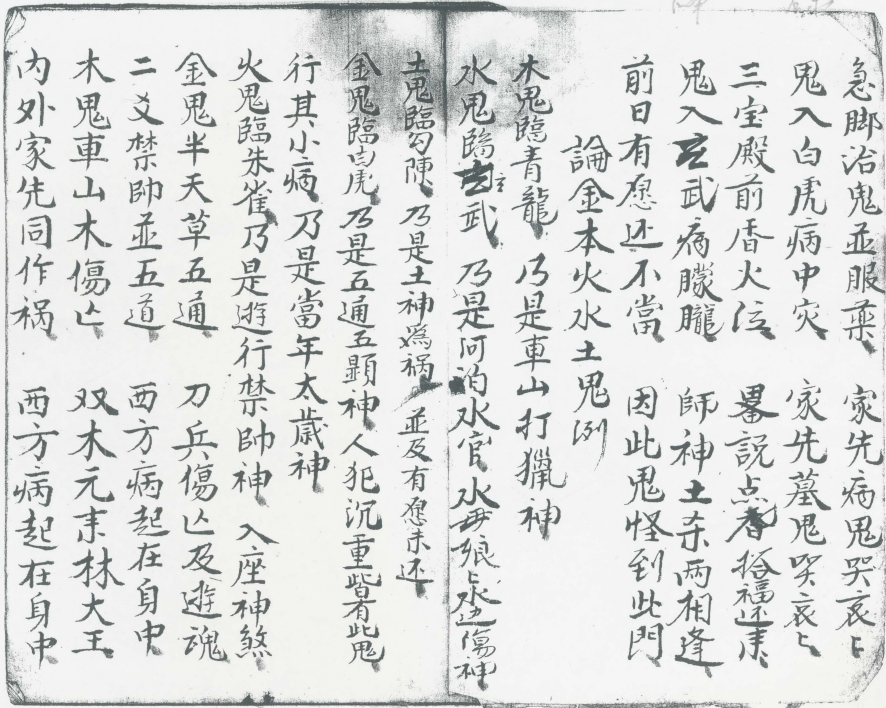 急脚治鬼並服藥 家先病鬼哭哀〻
鬼入白虎病中灾 家先墓鬼哭哀〻
三宝殿前香火位 畧説点香拾福还耒
鬼入玄武病朦朧 師神土杀两相逢
前日有愿还不當 因此鬼怪到此門
論金本火水土鬼例
木鬼臨青龍 乃是車山打獵神
水鬼臨玄武 乃是河泊水官水母娘〻水边傷神
土鬼臨勾陳 乃是土神為禍 並及有愿未还
金鬼臨白虎 乃是五通五顕神人犯沉重皆有此鬼
行其小病 乃是當年太歲神
火鬼臨朱雀乃是遊行禁帥神 入座神煞
金鬼半天草五通 刀兵傷亾及遊魂
二爻禁帥並五道 西方病起在身中
木鬼車山木傷亾 双木元耒林大王
内外家先同作祸 西方病起在身中